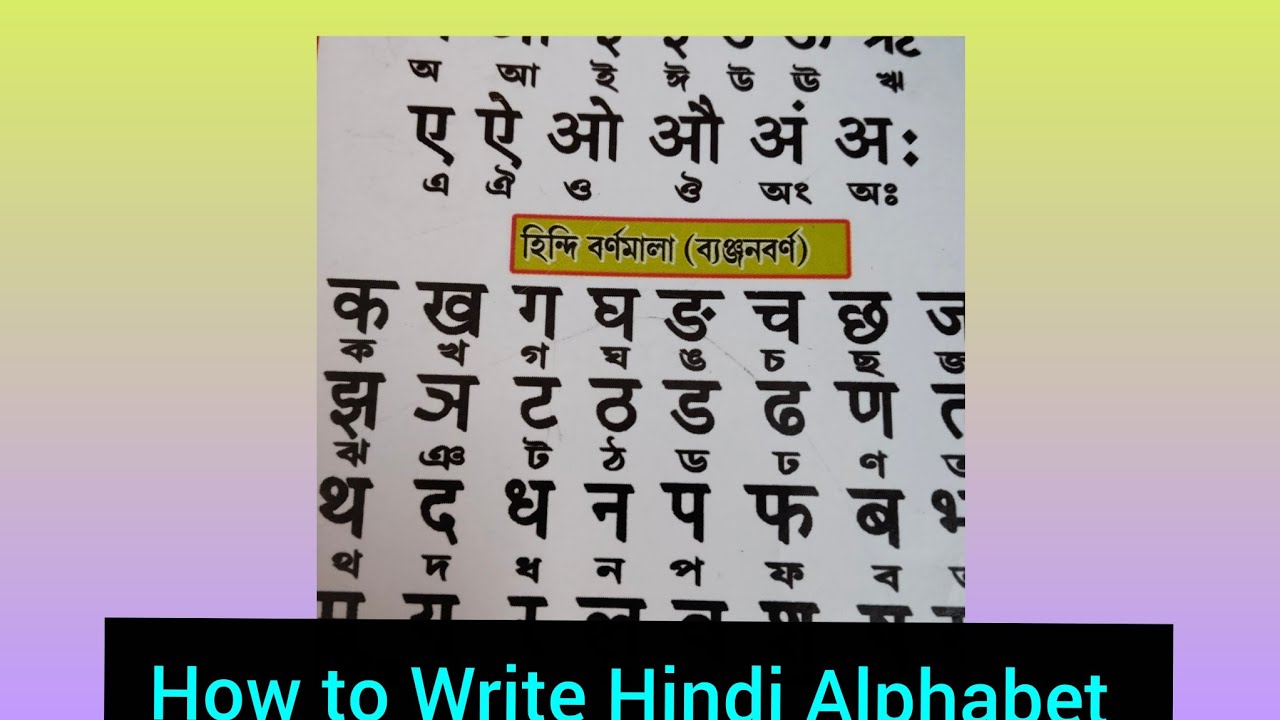 অ আ ই ঈ উ ঊ ঋ
ए ऐ ओ औ अं अः
এ ঐ ও ঔ অং অঃ
হিন্দি বর্ণমালা (ব্যঞ্জনবর্ণ)
क ख ग घ ङ च छ ज
ক খ গ ঘ ঙ চ ছ জ
झ ञ ट ठ ड ढ ण त
ঝ ঞ ট ঠ ড ঢ ণ
थ द ध न प फ ब भ
থ দ ধ ন প ফ ব
How to Write Hindi Alphabet